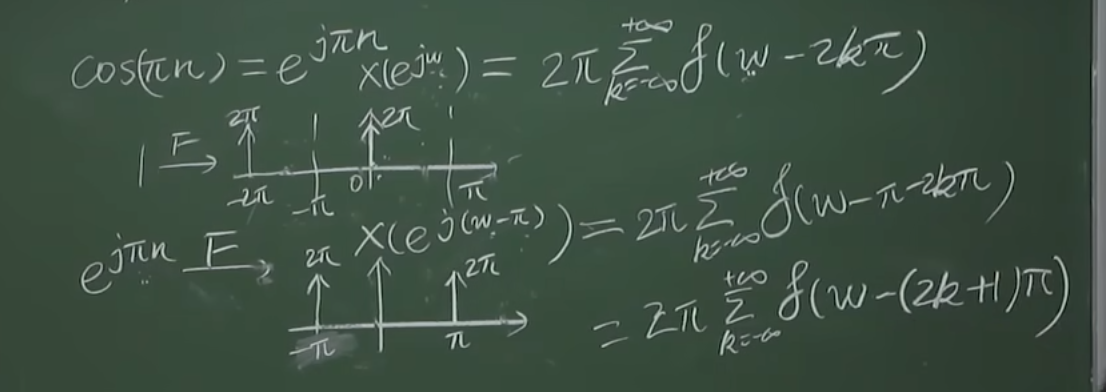 cos(πn) = e^{jπn} X(e^{jω}) = 2π Σ_{k=-∞}^{+∞} δ(ω - 2kπ)
1 F→ 2π 2π
-2π -π 0 π
e^{jπn} F→ X(e^{j(ω-π)}) = 2π Σ_{k=-∞}^{+∞} δ(ω - π - 2kπ)
2π 2π
-π π
= 2π Σ_{k=-∞}^{+∞} δ(ω - (2k+1)π)